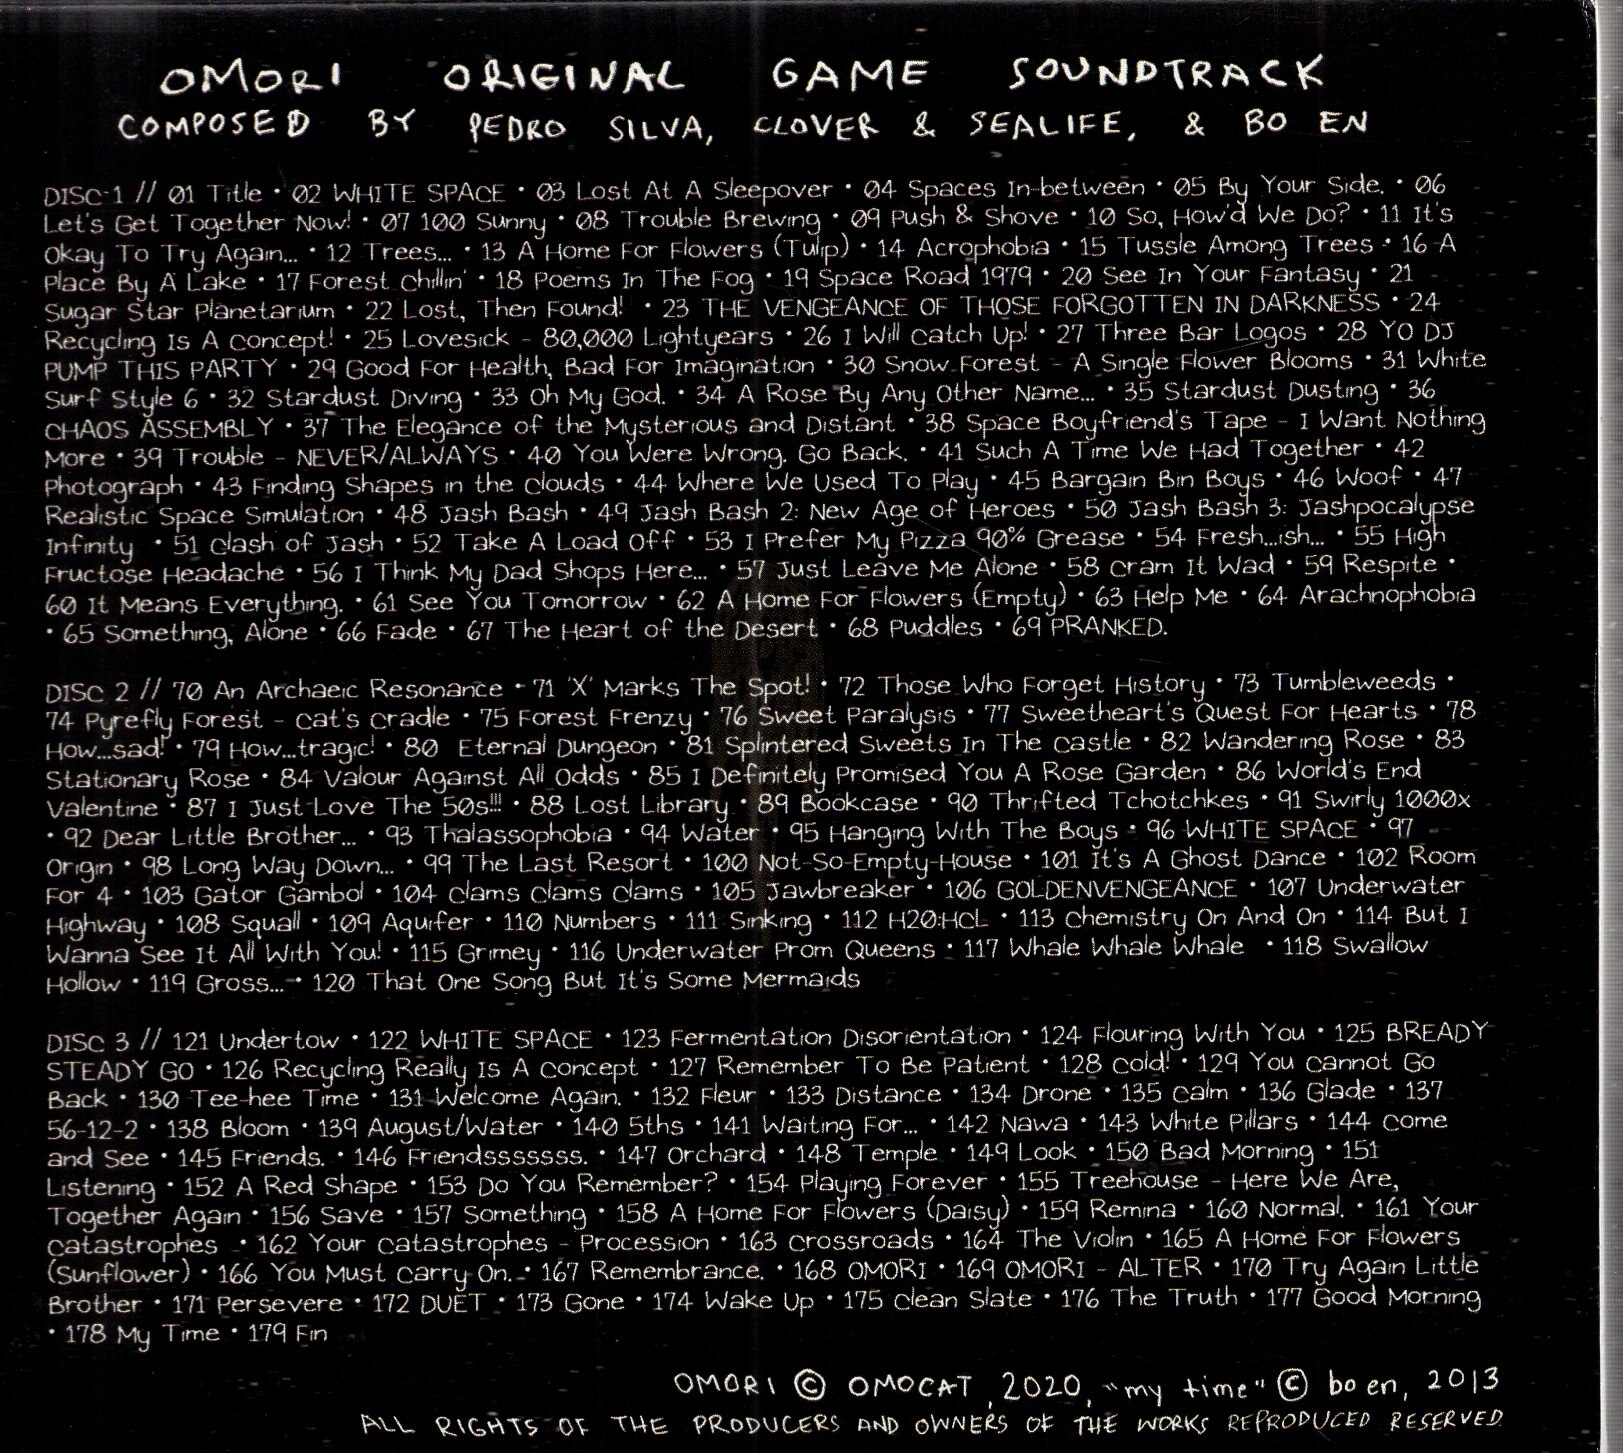 OMORI ORIGINAL GAME SOUNDTRACK
COMPOSED BY PEDRO SILVA, CLOVER & SEALIFE, & BO EN
DISC 1 // 01 Title • 02 WHITE SPACE • 03 Lost At A Sleepover • 04 Spaces In-between • 05 By Your Side. • 06
Let's Get Together Now! • 07 100 Sunny • 08 Trouble Brewing • 09 Push & Shove • 10 So, How'd We Do? • 11 It's
Okay To Try Again... • 12 Trees... • 13 A Home For Flowers (Tulip) • 14 Acrophobia • 15 Tussle Among Trees • 16 A
Place By A Lake • 17 Forest Chillin' • 18 Poems In The Fog • 19 Space Road 1979 • 20 See In Your Fantasy • 21
Sugar Star Planetarium • 22 Lost, Then Found! • 23 THE VENGEANCE OF THOSE FORGOTTEN IN DARKNESS • 24
Recycling Is A Concept! • 25 Lovesick - 80,000 Lightyears • 26 I Will Catch Up! • 27 Three Bar Logos • 28 YO DJ
PUMP THIS PARTY • 29 Good For Health, Bad For Imagination • 30 Snow Forest - A Single Flower Blooms • 31 White
Surf Style 6 • 32 Stardust Diving • 33 Oh My God. • 34 A Rose By Any Other Name... • 35 Stardust Dusting • 36
CHAOS ASSEMBLY • 37 The Elegance of the Mysterious and Distant • 38 Space Boyfriend's Tape - I Want Nothing
More • 39 Trouble - NEVER/ALWAYS • 40 You Were Wrong. Go Back. • 41 Such A Time We Had Together • 42
Photograph • 43 Finding Shapes in the Clouds • 44 Where We Used To Play • 45 Bargain Bin Boys • 46 Woof • 47
Realistic Space Simulation • 48 Jash Bash • 49 Jash Bash 2: New Age of Heroes • 50 Jash Bash 3: Jashpocalypse
Infinity • 51 Clash of Jash • 52 Take A Load Off • 53 I Prefer My Pizza 90% Grease • 54 Fresh...ish... • 55 High
Fructose Headache • 56 I Think My Dad Shops Here... • 57 Just Leave Me Alone • 58 Cram It Wad • 59 Respite •
60 It Means Everything. • 61 See You Tomorrow • 62 A Home For Flowers (Empty) • 63 Help Me • 64 Arachnophobia
• 65 Something, Alone • 66 Fade • 67 The Heart of the Desert • 68 Puddles • 69 PRANKED.
DISC 2 // 70 An Archaeic Resonance • 71 'X' Marks The Spot! • 72 Those Who Forget History • 73 Tumbleweeds •
74 Pyrefly Forest - Cat's Cradle • 75 Forest Frenzy • 76 Sweet Paralysis • 77 Sweetheart's Quest For Hearts • 78
How...sad! • 79 How...tragic! • 80 Eternal Dungeon • 81 Splintered Sweets In The Castle • 82 Wandering Rose • 83
Stationary Rose • 84 Valour Against All Odds • 85 I Definitely Promised You A Rose Garden • 86 World's End
Valentine • 87 I Just Love The 50s!!! • 88 Lost Library • 89 Bookcase • 90 Thrifted Tchotchkes • 91 Swirly 1000x
• 92 Dear Little Brother... • 93 Thalassophobia • 94 Water • 95 Hanging With The Boys • 96 WHITE SPACE • 97
Origin • 98 Long Way Down... • 99 The Last Resort • 100 Not-So-Empty-House • 101 It's A Ghost Dance • 102 Room
For 4 • 103 Gator Gambol • 104 Clams Clams Clams • 105 Jawbreaker • 106 GOLDENVENGEANCE • 107 Underwater
Highway • 108 Squall • 109 Aquifer • 110 Numbers • 111 Sinking • 112 H20:HCL • 113 Chemistry On And On • 114 But I
Wanna See It All With You! • 115 Grimey • 116 Underwater Prom Queens • 117 Whale Whale Whale • 118 Swallow
Hollow • 119 Gross... • 120 That One Song But It's Some Mermaids
DISC 3 // 121 Undertow • 122 WHITE SPACE • 123 Fermentation Disorientation • 124 Flouring With You • 125 BREADY
STEADY GO • 126 Recycling Really Is A Concept • 127 Remember To Be Patient • 128 Cold! • 129 You Cannot Go
Back • 130 Tee-hee Time • 131 Welcome Again. • 132 Fleur • 133 Distance • 134 Drone • 135 Calm • 136 Glade • 137
56-12-2 • 138 Bloom • 139 August/Water • 140 5ths • 141 Waiting For... • 142 Nawa • 143 White Pillars • 144 Come
and See • 145 Friends. • 146 Friendsssssss. • 147 Orchard • 148 Temple • 149 Look • 150 Bad Morning • 151
Listening • 152 A Red Shape • 153 Do You Remember? • 154 Playing Forever • 155 Treehouse - Here We Are,
Together Again • 156 Save • 157 Something • 158 A Home For Flowers (Daisy) • 159 Remina • 160 Normal. • 161 Your
Catastrophes • 162 Your Catastrophes - Procession • 163 Crossroads • 164 The Violin • 165 A Home For Flowers
(Sunflower) • 166 You Must Carry On. • 167 Remembrance. • 168 OMORI • 169 OMORI - ALTER • 170 Try Again Little
Brother • 171 Persevere • 172 DUET • 173 Gone • 174 Wake Up • 175 Clean Slate • 176 The Truth • 177 Good Morning
• 178 My Time • 179 Fin
OMORI © OMOCAT, 2020, "my time" © bo en, 2013
ALL RIGHTS OF THE PRODUCERS AND OWNERS OF THE WORKS REPRODUCED RESERVED.